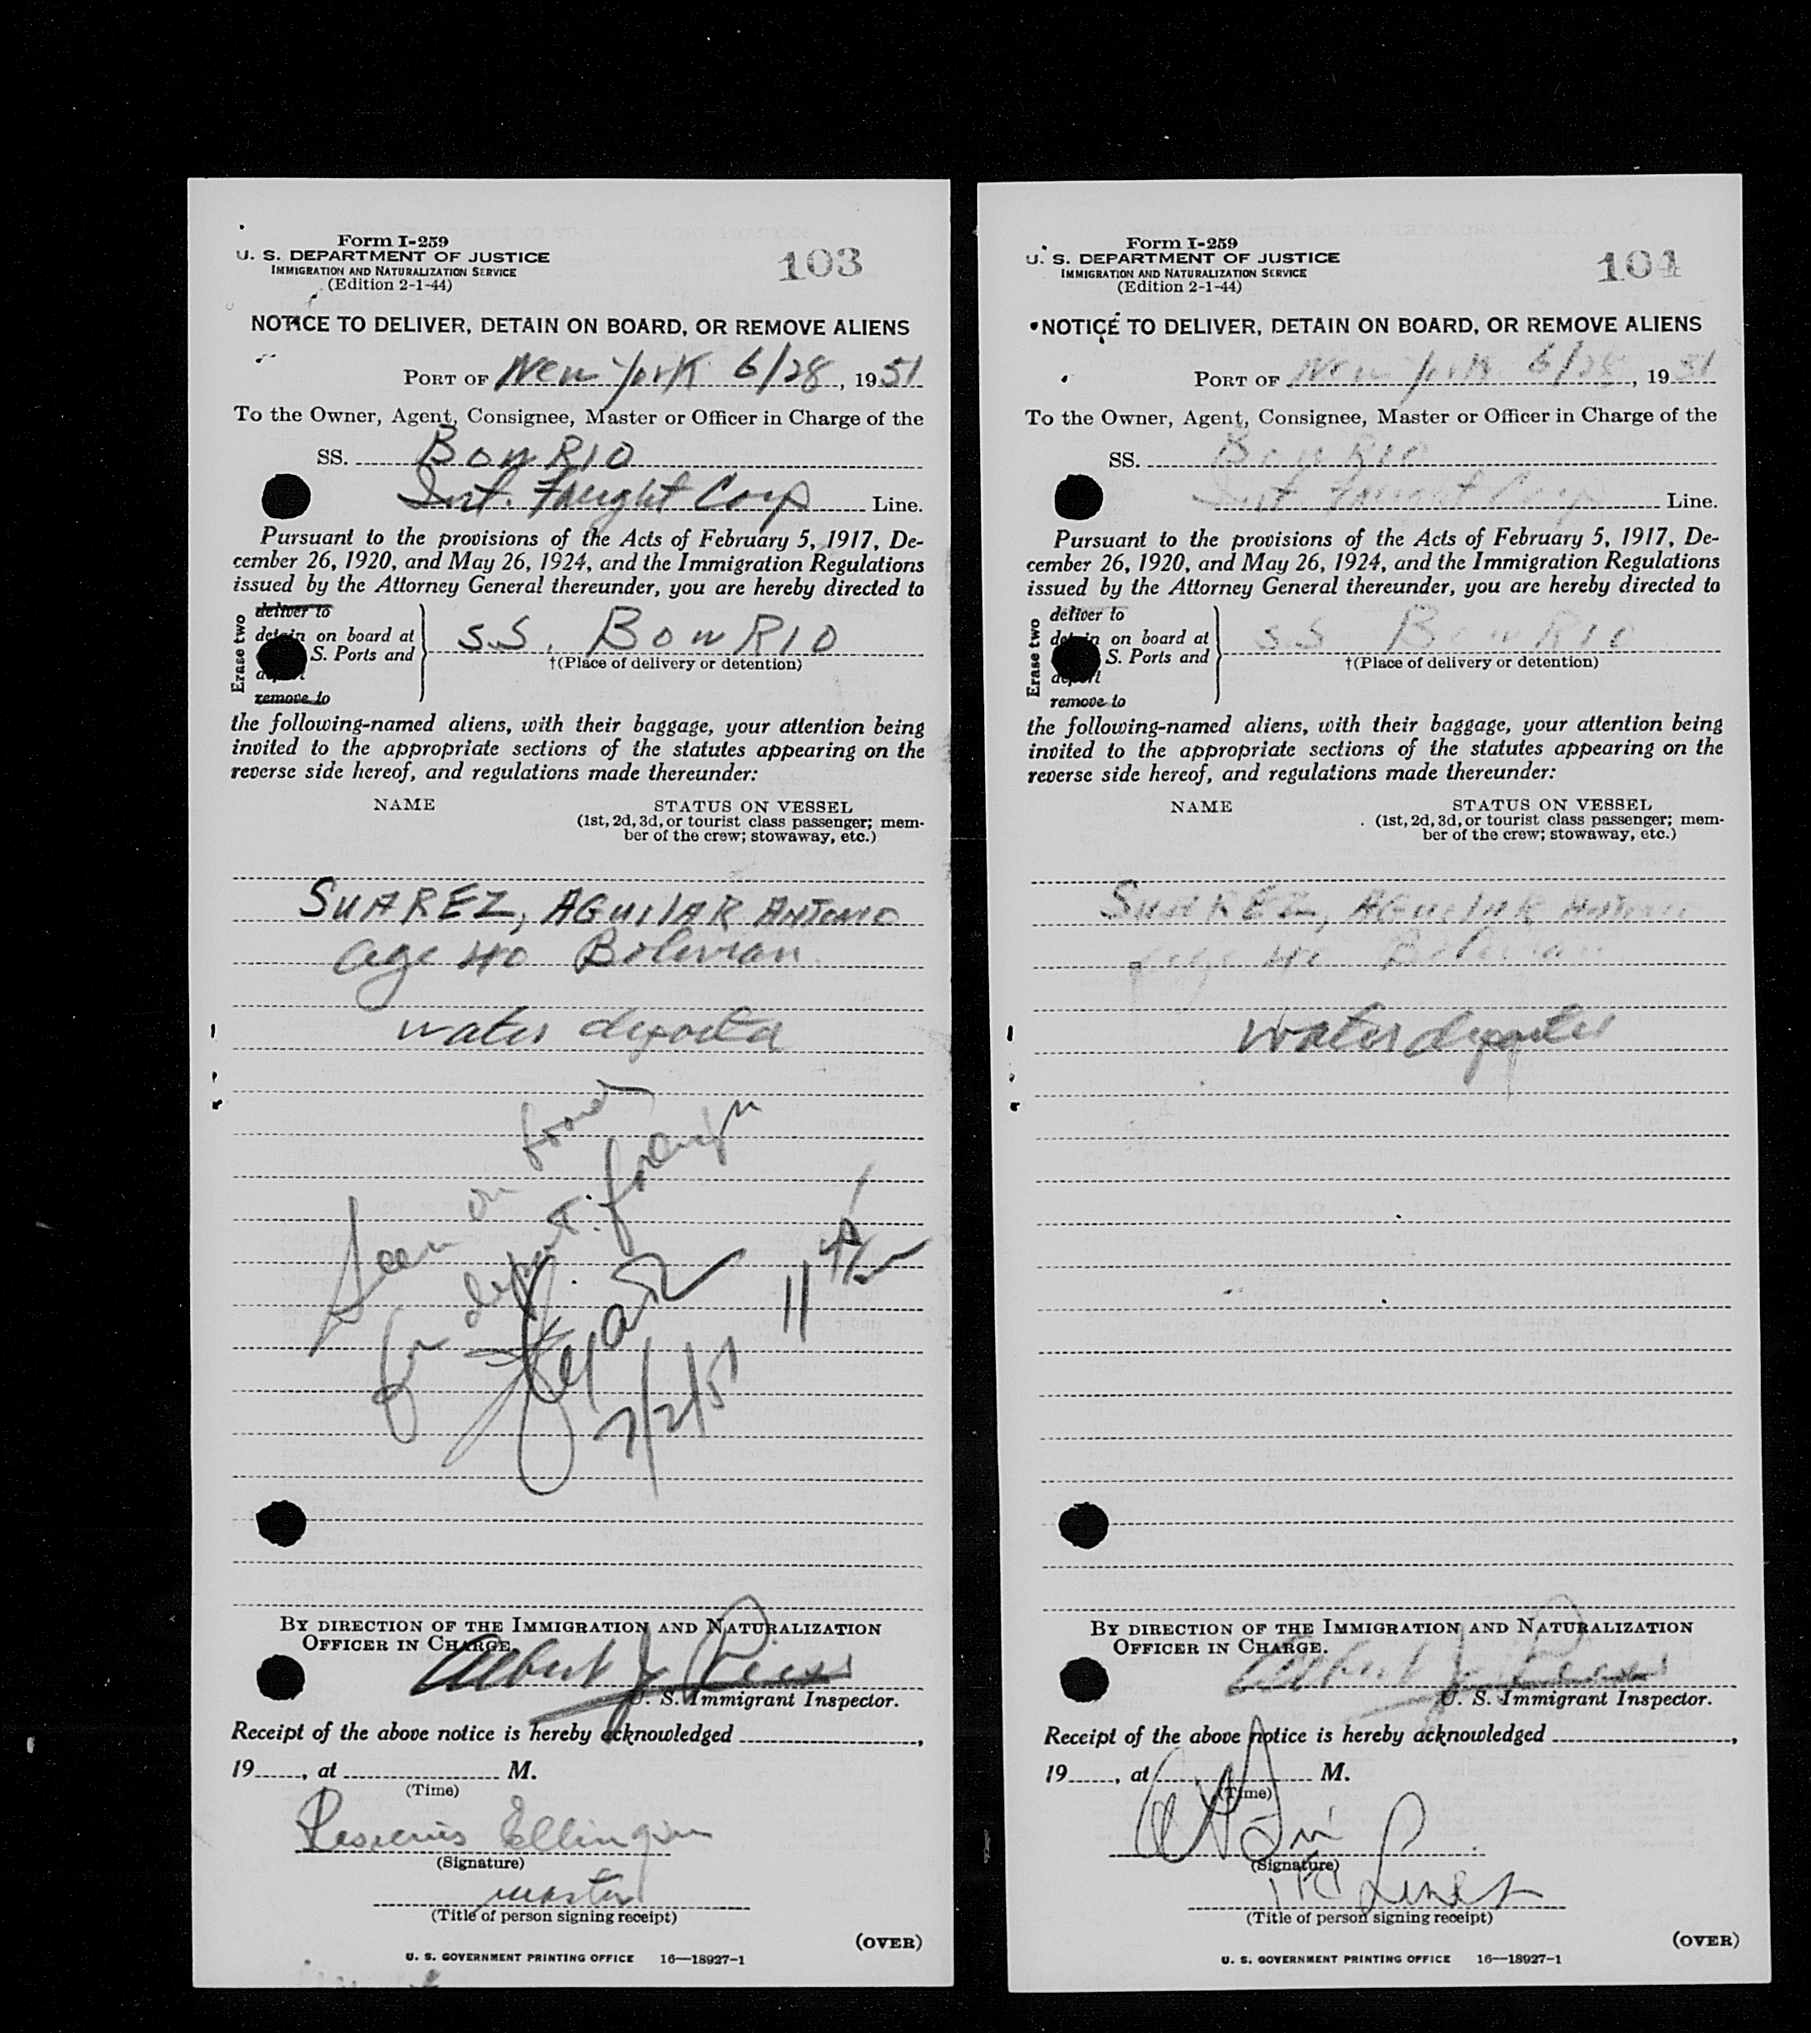 Form I-259
U. S. DEPARTMENT OF JUSTICE
IMMIGRATION AND NATURALIZATION SERVICE
(Edition 2-1-44)
103
NOTICE TO DELIVER, DETAIN ON BOARD, OR REMOVE ALIENS
PORT OF New York 6/28, 1951
To the Owner, Agent, Consignee, Master or Officer in Charge of the
SS. BOW RIO
Int. Freight Corp Line.
Pursuant to the provisions of the Acts of February 5, 1917, De-
cember 26, 1920, and May 26, 1924, and the Immigration Regulations
issued by the Attorney General thereunder, you are hereby directed to
Erase two
deliver to
detain on board at
S. Ports and
remove to
S.S. BOW RIO
†(Place of delivery or detention)
the following-named aliens, with their baggage, your attention being
invited to the appropriate sections of the statutes appearing on the
reverse side hereof, and regulations made thereunder:
NAME
STATUS ON VESSEL
(1st, 2d, 3d, or tourist class passenger; mem-
ber of the crew; stowaway, etc.)
SUAREZ, AGUILAR ANTONIO
age 40 Bolivian
water
Seen on board
for depart. foreign
7/2/51
11
BY DIRECTION OF THE IMMIGRATION AND NATURALIZATION
OFFICER IN CHARGE.
Albert J.
U. S. Immigrant Inspector.
Receipt of the above notice is hereby acknowledged ,
19 , at M.
(Time)
Ellingsen
(Signature)
master
(Title of person signing receipt)
(OVER)
U. S. GOVERNMENT PRINTING OFFICE 16—18927-1
Form I-259
U. S. DEPARTMENT OF JUSTICE
IMMIGRATION AND NATURALIZATION SERVICE
(Edition 2-1-44)
104
NOTICE TO DELIVER, DETAIN ON BOARD, OR REMOVE ALIENS
PORT OF New York 6/28, 1951
To the Owner, Agent, Consignee, Master or Officer in Charge of the
SS. BOW RIO
Int. Freight Corp Line.
Pursuant to the provisions of the Acts of February 5, 1917, De-
cember 26, 1920, and May 26, 1924, and the Immigration Regulations
issued by the Attorney General thereunder, you are hereby directed to
Erase two
deliver to
detain on board at
S. Ports and
deport
remove to
S.S BOW RIO
†(Place of delivery or detention)
the following-named aliens, with their baggage, your attention being
invited to the appropriate sections of the statutes appearing on the
reverse side hereof, and regulations made thereunder:
NAME
STATUS ON VESSEL
(1st, 2d, 3d, or tourist class passenger; mem-
ber of the crew; stowaway, etc.)
SUAREZ, AGUILAR ANTONIO
age 40 Bolivian
water
BY DIRECTION OF THE IMMIGRATION AND NATURALIZATION
OFFICER IN CHARGE.
Albert J.
U. S. Immigrant Inspector.
Receipt of the above notice is hereby acknowledged ,
19 , at M.
(Time)
(Signature)
(Title of person signing receipt)
(OVER)
U. S. GOVERNMENT PRINTING OFFICE 16—18927-1